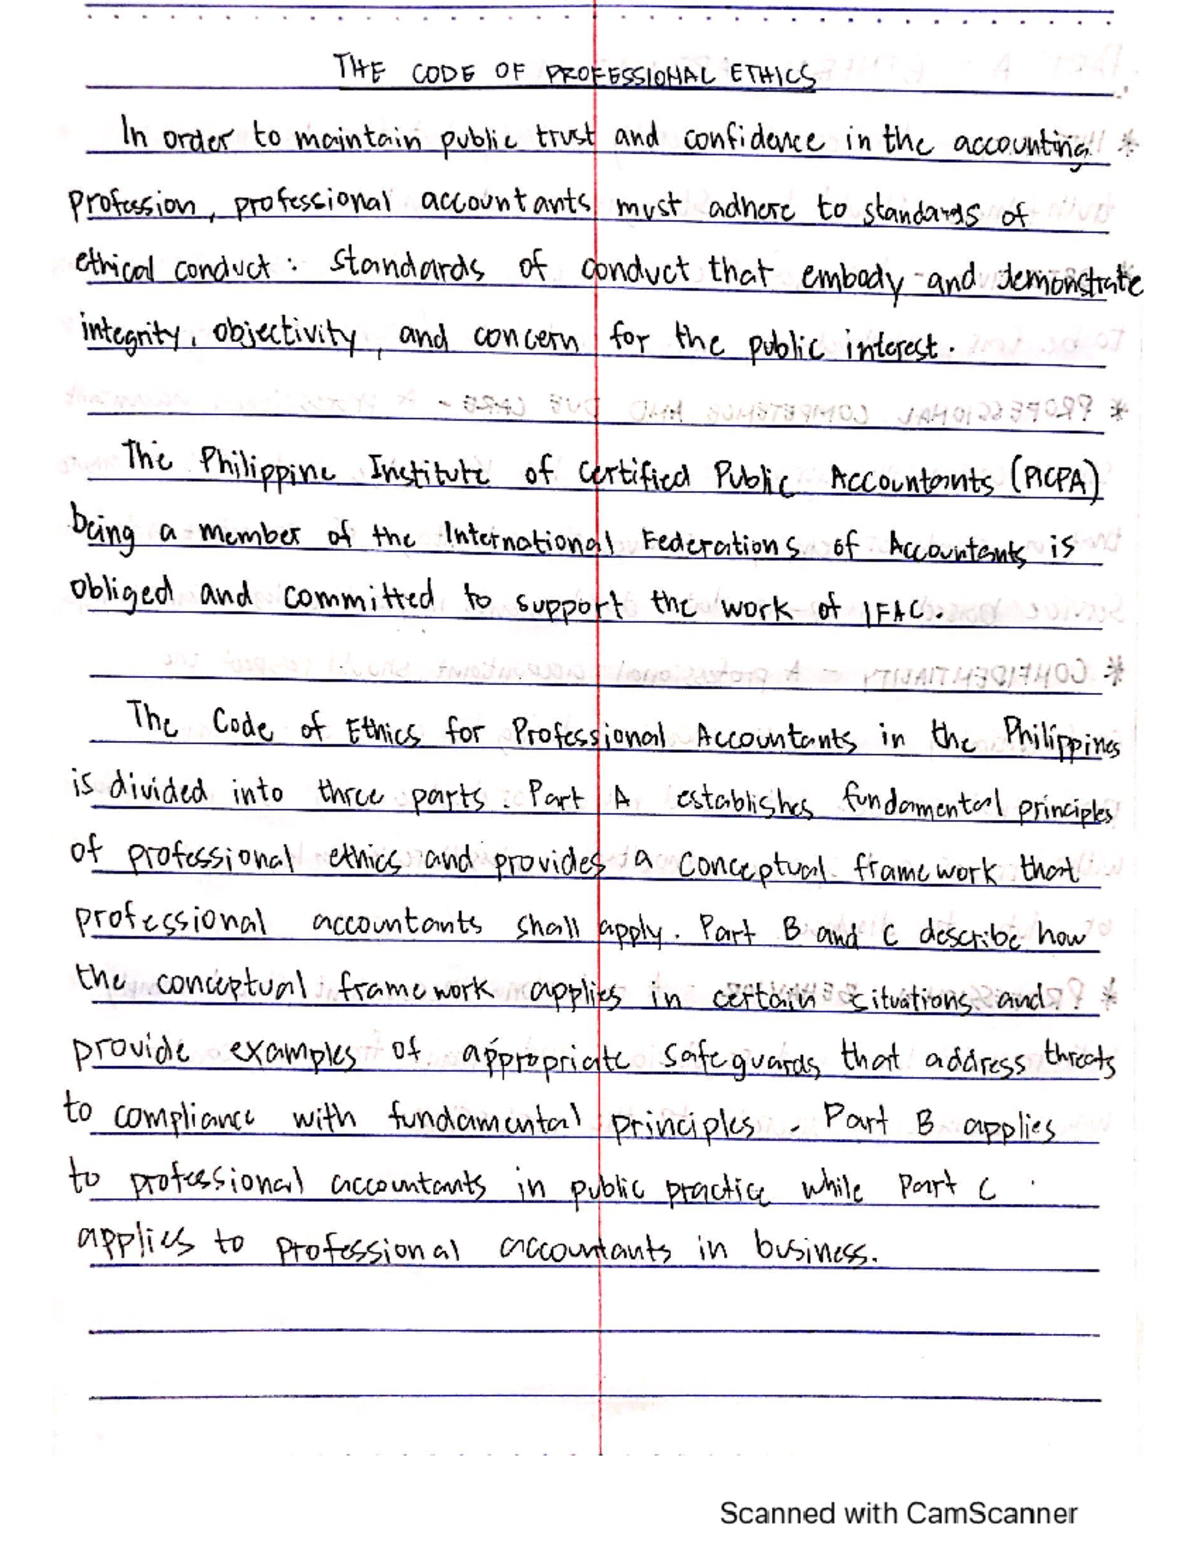 THE CODE OF PROFESSIONAL ETHICS
In order to maintain public trust and confidence in the accounting
profession, professional accountants must adhere to standards of
ethical conduct: standards of conduct that embody and demonstrate
integrity, objectivity, and concern for the public interest.
The Philippine Institute of Certified Public Accountants (PICPA)
being a member of the International Federations of Accountants is
obliged and committed to support the work of IFAC.
The Code of Ethics for Professional Accountants in the Philippines
is divided into three parts. Part A establishes fundamental principles
of professional ethics and provides a conceptual framework that
professional accountants shall apply. Part B and C describe how
the conceptual framework applies in certain situations and
provide examples of appropriate safeguards that address threats
to compliance with fundamental principles. Part B applies
to professional accountants in public practice while Part C
applies to professional accountants in business.
Scanned with CamScanner